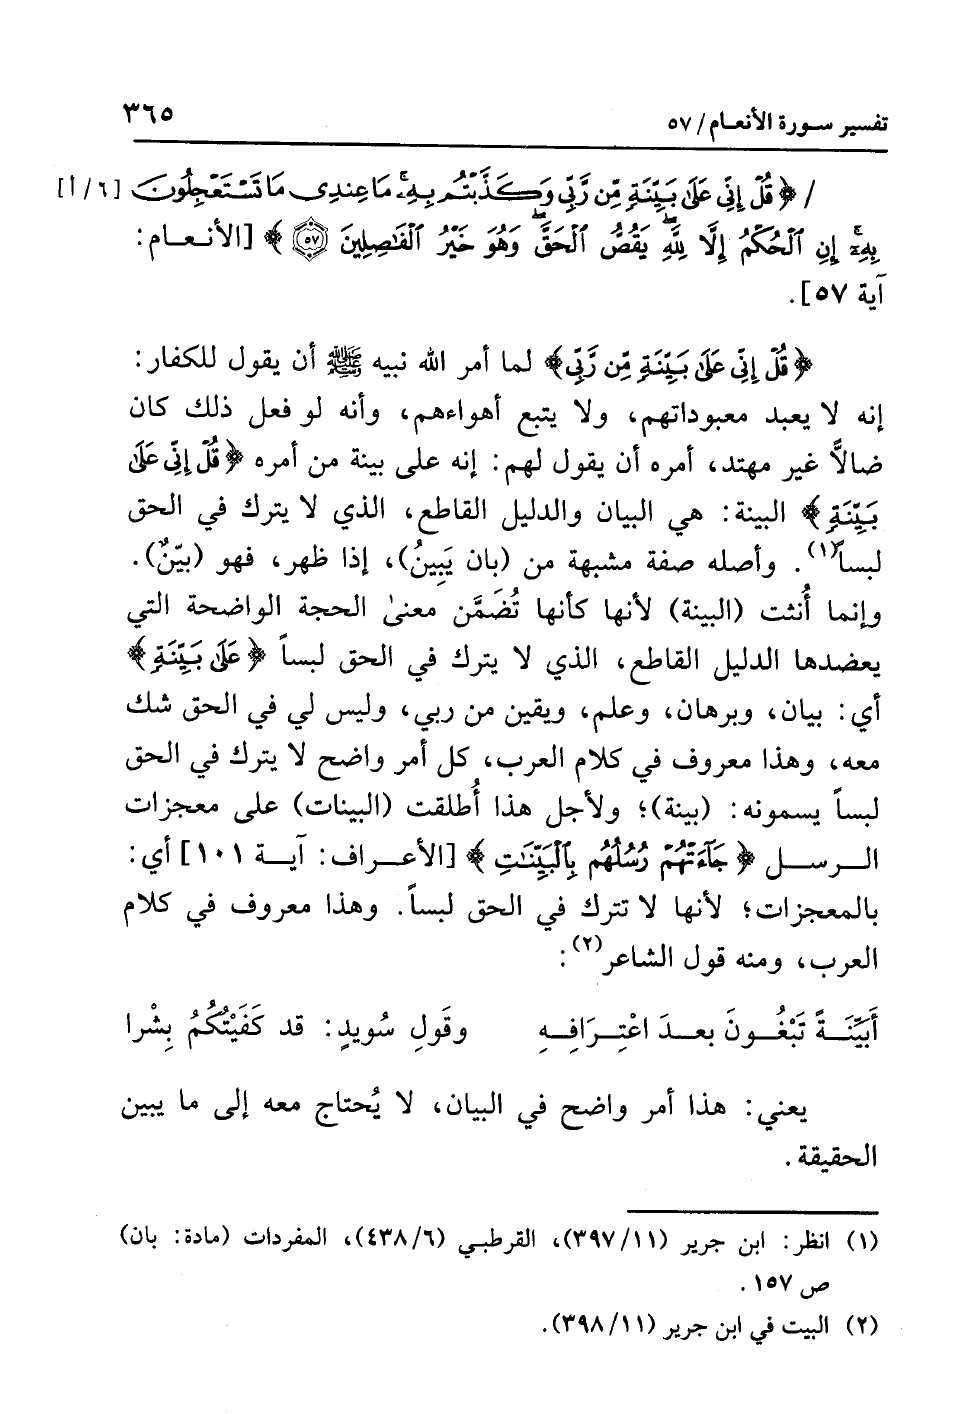 تفسير سورة الأنعام/ ٥٧
٣٦٥
/ ﴿قُلْ إِنِّي عَلَىٰ بَيِّنَةٍ مِّن رَّبِّي وَكَذَّبْتُم بِهِۦ مَا عِندِى مَا تَسْتَعْجِلُونَ [٦/أ]
بِهِۦٓ إِنِ ٱلْحُكْمُ إِلَّا لِلَّهِ يَقُصُّ ٱلْحَقَّ وَهُوَ خَيْرُ ٱلْفَٰصِلِينَ ۝٥٧﴾ [الأنعام:
آية ٥٧].
﴿قُلْ إِنِّي عَلَىٰ بَيِّنَةٍ مِّن رَّبِّي﴾ لما أمر الله نبيه ﷺ أن يقول للكفار:
إنه لا يعبد معبوداتهم، ولا يتبع أهواءهم، وأنه لو فعل ذلك كان
ضالاًّ غير مهتد، أمره أن يقول لهم: إنه على بينة من أمره ﴿قُلْ إِنِّي عَلَىٰ
بَيِّنَةٍ﴾ البينة: هي البيان والدليل القاطع، الذي لا يترك في الحق
لبساً(١). وأصله صفة مشبهة من (بان يَبِينُ)، إذا ظهر، فهو (بيّنٌ).
وإنما أُنثت (البينة) لأنها كأنها تُضَمَّن معنىٰ الحجة الواضحة التي
يعضدها الدليل القاطع، الذي لا يترك في الحق لبساً ﴿عَلَىٰ بَيِّنَةٍ﴾
أي: بيان، وبرهان، وعلم، ويقين من ربي، وليس لي في الحق شك
معه، وهذا معروف في كلام العرب، كل أمر واضح لا يترك في الحق
لبساً يسمونه: (بينة)؛ ولأجل هذا أُطلقت (البينات) على معجزات
الرسل ﴿جَآءَتْهُمْ رُسُلُهُم بِٱلْبَيِّنَٰتِ﴾ [الأعراف: آية ١٠١] أي:
بالمعجزات؛ لأنها لا تترك في الحق لبساً. وهذا معروف في كلام
العرب، ومنه قول الشاعر(٢):
أَبَيِّنَةً تَبْغُونَ بعدَ اعْتِرَافِهِ وقَولِ سُويدٍ: قد كَفَيْتُكُمُ بِشْرا
يعني: هذا أمر واضح في البيان، لا يُحتاج معه إلى ما يبين
الحقيقة.
(١) انظر: ابن جرير (٣٩٧/١١)، القرطبي (٤٣٨/٦)، المفردات (مادة: بان)
ص ١٥٧.
(٢) البيت في ابن جرير (٣٩٨/١١).